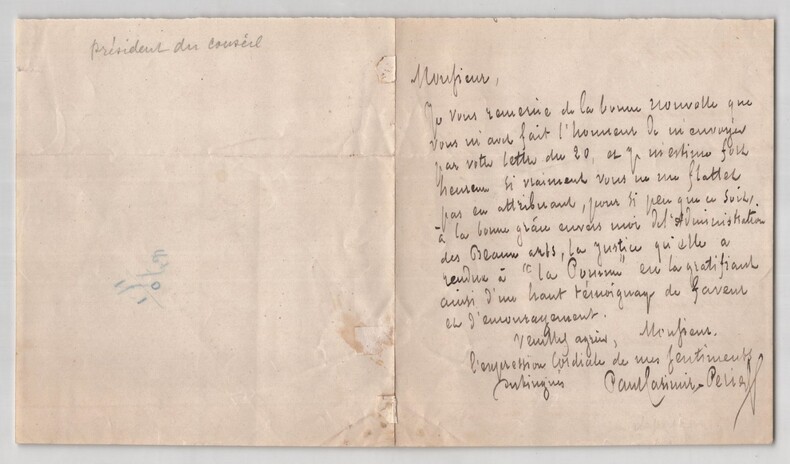 président du conseil
Monsieur,
Je vous remercie de la bonne nouvelle que
vous m'avez fait l'honneur de m'envoyer
par votre lettre du 20, et je m'estime fort
heureux si vraiment vous ne me flattez
pas en attribuant, pour si peu que ce soit,
à la bonne grâce envers moi de l'Administration
des Beaux arts, la justice qu'elle a
rendue à "la" en la gratifiant
ainsi d'un haut témoignage de faveur
et d'encouragement.
Veuillez agréer, Monsieur.
l'expression cordiale de mes sentiments
distingués Paul Casimir-Perier